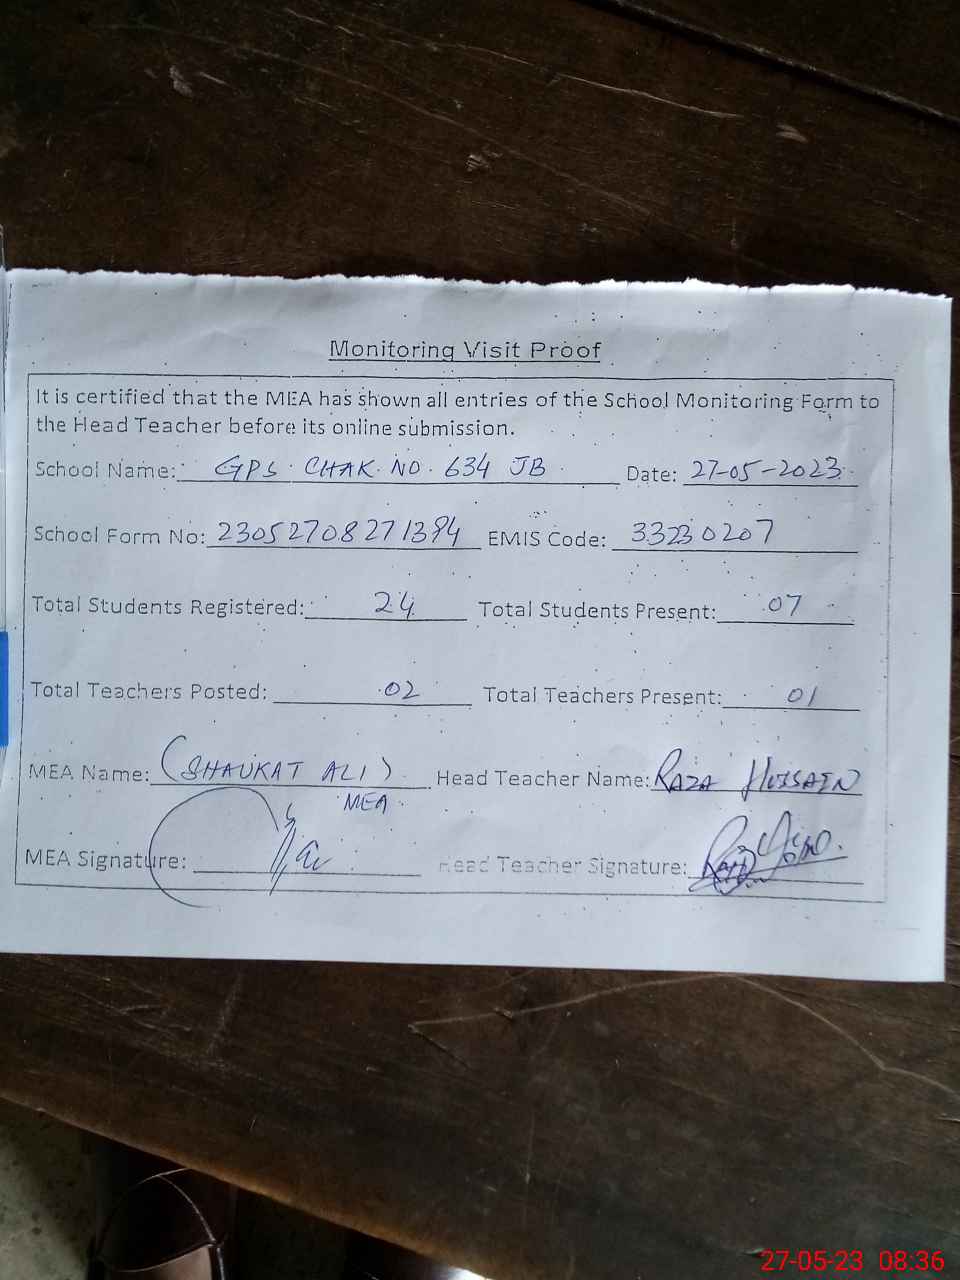 Monitoring Visit Proof
It is certified that the MEA has shown all entries of the School Monitoring Form to
the Head Teacher before its online submission.
School Name: GPS CHAK NO. 634 JB Date: 27-05-2023
School Form No: 23052708271394 EMIS Code: 33230207
Total Students Registered: 24 Total Students Present: 07
Total Teachers Posted: 02 Total Teachers Present: 01
MEA Name: (SHAUKAT ALI) Head Teacher Name: RAZA HUSSAIN
MEA
MEA Signature: Head Teacher Signature:
27-05-23 08:36